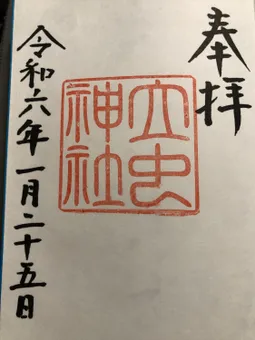 奉拝
大虫
神社
令和六年一月二十五日